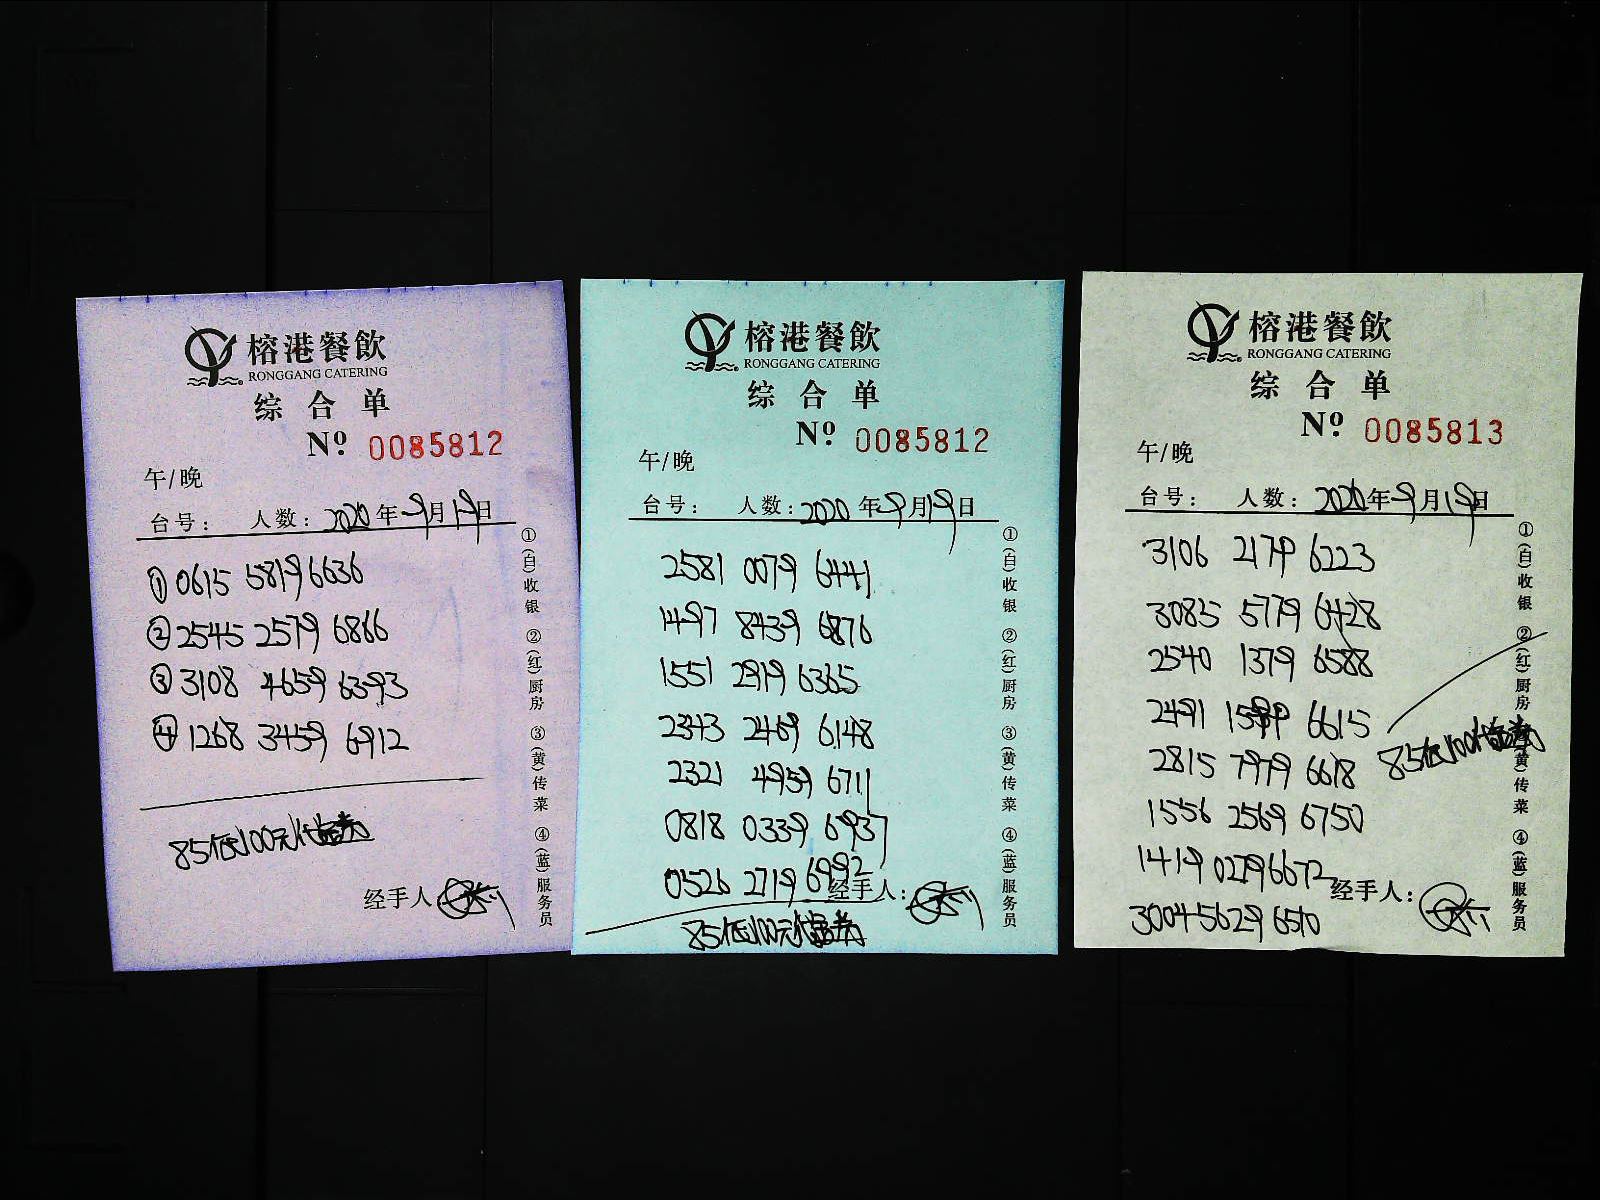 榕港餐飲
RONGGANG CATERING
综合单
Nº 0085812
午/晚
台号： 人数：2020年9月19日
① 0615 5819 6636
② 2545 2579 6866
③ 3108 4659 6393
④ 1268 3459 6912
85抵100元代金券
经手人
①(白)收银 ②(红)厨房 ③(黄)传菜 ④(蓝)服务员
榕港餐飲
RONGGANG CATERING
综合单
Nº 0085812
午/晚
台号： 人数：2020年9月19日
2581 0079 6441
1497 8439 6876
1551 2919 6365
2343 2469 6148
2321 4959 6711
0818 0339 6937
0526 2719 6992
经手人：
85抵100元代金券
①(白)收银 ②(红)厨房 ③(黄)传菜 ④(蓝)服务员
榕港餐飲
RONGGANG CATERING
综合单
Nº 0085813
午/晚
台号： 人数：2020年9月19日
3106 2179 6223
3085 5779 6428
2540 1379 6588
2491 6615
2815 7979 6618
1556 2569 6750
1419 0279 6672
3004 5629 6510
85抵100代金券
经手人：
①(白)收银 ②(红)厨房 ③(黄)传菜 ④(蓝)服务员